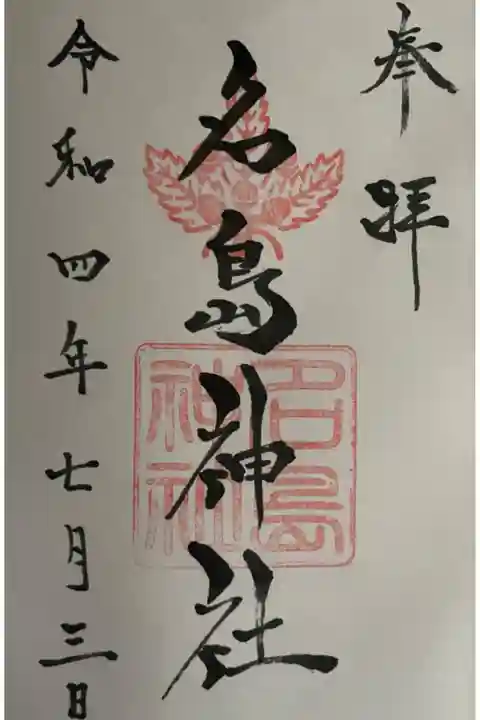 奉拝
名島神社
名島
神社
令和四年七月三日